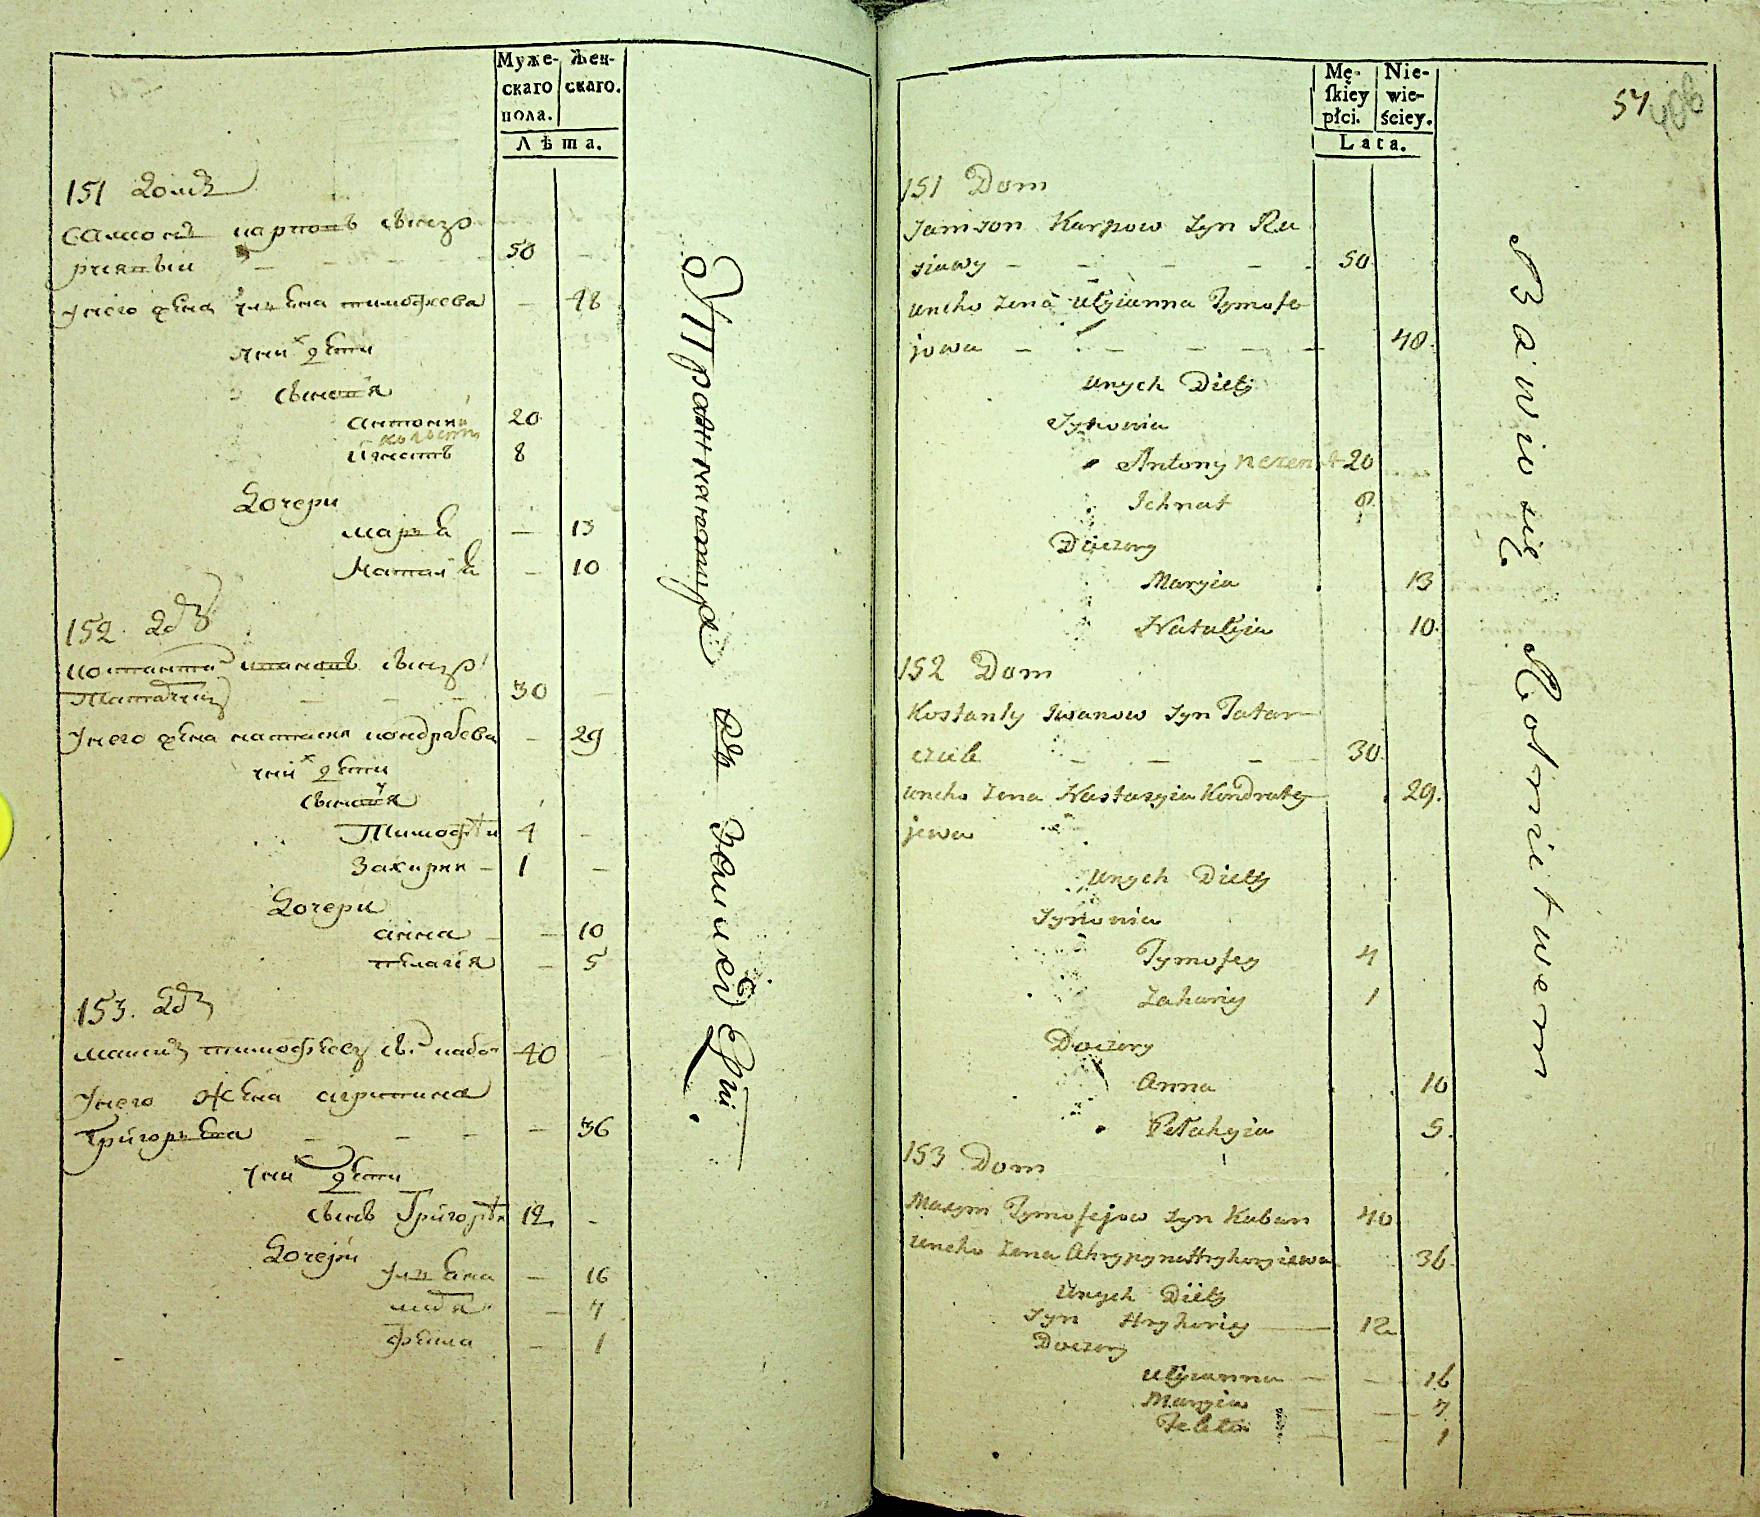 Муже-
скаго
пола.
Жен-
скаго.
Лѣта.
151 домъ
Самсонъ карповъ сынъ
50
Унего жена улиена тимофѣева
— 48
уних дети
сыновя
антонии 20
холостъ
игнатъ 8
дочери
мария — 13
наталия — 10
152
костантї ивановъ сынъ
30 —
Унего жена настасия кондратева — 29
уних дети
сыновя
Тимофѣи 4 —
Захарии — 1 —
дочери
анна — 10
пелагїя — 5
153.
максимъ тимофѣевъ сынъ кабан 40
Унего жена агрипина
Григорьева — — — 36
уних дети
сынъ Григорѣи 12 —
дочери
улиена — 16
— 7
— 1
Упражняются въ
Mę-
ſkiey
płci.
Nie-
wie-
ściey.
Lata.
54
406
151 Dom
Samson Karpow Syn Ru
sinwy — — — — 50.
uneho Żena Ulyianna Tymofe
jowa — — — — — 48.
unych Diety
Synowia
Antony 20
Ichnat 8
Doczery
Maryia 13
Natalyia 10.
152 Dom
Kostanty Iwanow Syn Tatar
czuk — — — 30.
uneho Żena Nastazyia Kondraty 29.
jewa
unych Diety
Synowia
Tymofey 4
Zahariy 1
Doczery
Anna 10
Pełahyia 5.
153 Dom
Maxym Tymofejow Syn Kaban 40
uneho Żena Ahrypyna Hryhoryiewa 36.
Unych Diety
Syn Hryhoriy — 12
Doczery
Ulyianna — — 16
Maryia — — 7
1
Bawio się Rolnictwem